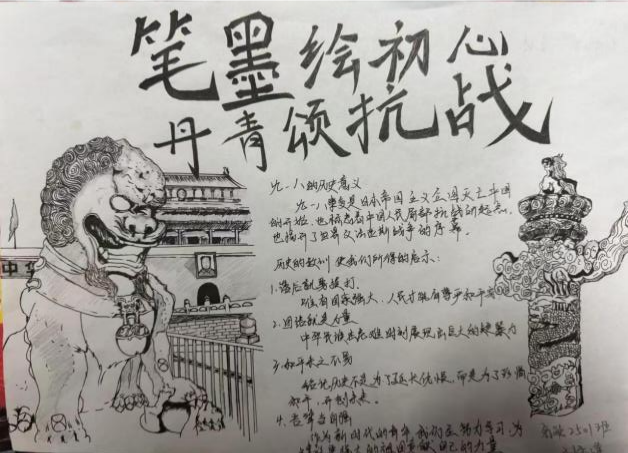 笔墨绘初心
丹青颂抗战
九一八的历史意义
九一八事变是日本帝国主义企图灭亡中国
的开始,也标志着中国人民局部抗战的起点,
也揭开了世界反法西斯战争的序幕。
历史的教训使我们所得的启示:
1.落后就要挨打.
唯有国家强大、人民才能有尊严和平
2.团结就是力量
中华民族在危难时刻展现出巨大的凝聚力
3.和平来之不易
铭记历史不是为了延长仇恨,而是为了珍惜
和平,开创未来。
4.吾辈当自强
作为新时代的青年我们应努力学习,为
的祖国贡献自己的力量
2501班
中